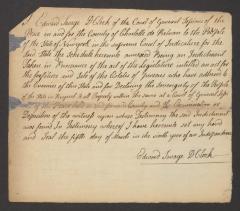 I Edward Savage D Clerk of the Court of General Sessions of the
Peace in and for the County of Charlotte do Return to the
of the State of New York in the supreme Court of Judicature for the
said State the Schedule hereunto annexed Being an Indictment
Taken in Pursuance of the act of the Legislature intitled an act for
the forfeiture and Sale of the Estates of Persons who have adhered to
the Enemies of this State and for Declaring the Sovereignty of the People
of this State in Respect to all Property within the same at a Court of General
of the Peace held in and for said County and the Examination or
Deposition of the witness upon whose Testimony the said Indictment
was found In Testimony whereof I have hereunto set my hand
and Seal the fifth day of March in the ninth year of our Independence
Edward Savage D Clerk